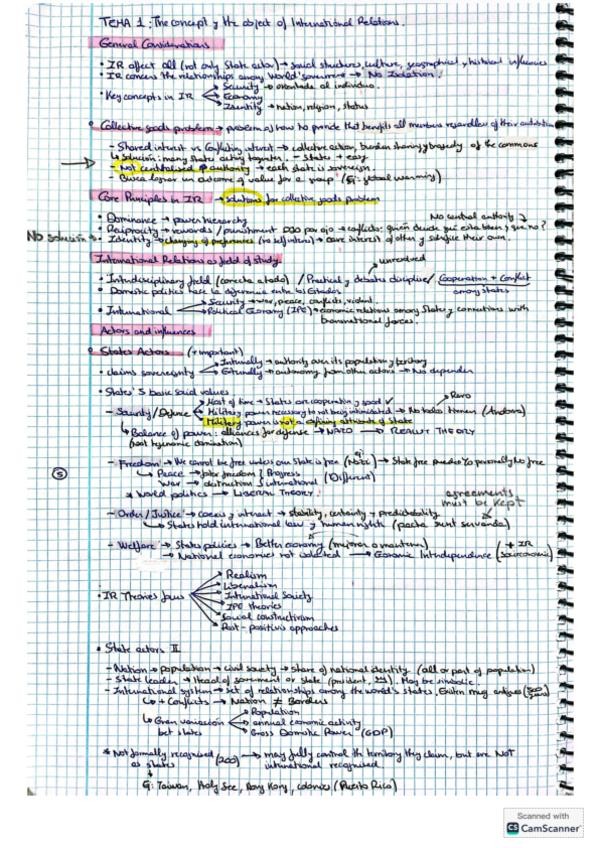 TEMA 1: The concept y the object of International Relations.
General Considerations
• IR affect all (not only State actor) → social structures, culture, geographical y historical influences
• IR concers the relationships among World's goverment → No Isolation!
Security →
• Key concepts in IR Economy
Identity → nation, religion, status
• Collective goods problem → problem of how to provide that benefits all members regardless of their
- Shared interest vs Conflicting interest → collective action, burden sharing y tragedy of the commons
↳ Solución: many States acting together. - States + easy
- Not centralised authority → each state is sovereign.
- Busca lograr un outcome of value for a group (Ej: global warming)
Core Principles in IR → solutions for collective goods problem
No central authority
• Dominance → power hierarchy
• Reciprocity → rewards / punishment ojo por ojo → conflicto: quién decide qué está bien y que no?
No solución → • Identity → changing of preferences (no self interes) → care interest of others y sacrifice their own.
International Relations as field of study
unresolved
• Interdisciplinary field (conecta a todo) / Practical y debates discipline / Cooperation + Conflict
among States
• Domestic politics hace la diferencia entre los Estados
• International Security → war, peace, conflicts, violent.
Political Economy (IPE) → economic relations among States y connections with
transnational forces.
Actors and influences
• States Actors (+ important)
• claims sovereignty Internally → authority over its population y territory
Externally → autonomy from other actors → No depender
• States' 5 basic social values
Most of time → States are cooperating y good ✓
- Security/Defence Military power necessary to not being intimidated → No todos tienen (Andorra)
Military power is not a defining attribute of state
↳ Balance of power: alliances for defense → NATO → REALIST THEORY
(not hegemonic domination)
⑤ - Freedom → We cannot be free unless our State is free → State free puede y personally no free
↳ Peace → foster freedom y Progress
War → destruction international (Different)
* World politics → LIBERAL THEORY!
agreements
must be kept
- Order/Justice → common interest → stability, certainty y predictability
↳ States hold international law y human rights (pacta sunt servanda)
- Welfare → States policies → Better economy
→ National economies not isolated → Economic Interdependence
+ IR
• IR Theories focus
Realism
Liberalism
International Society
IPE theories
Social constructivism
Post-positivis approaches
• State actors II
- Nation → population → civil society → share of national identity (all or part of population)
- State leader → Head of goverment or state (president, ). May be simbolic.
- International system → set of relationships among the world's states. Existen muy antiguos
↳ + Conflicts → Nation ≠ Borders
Population
↳ Gran variación annual economic activity
bet states Gross Domestic Power (GDP)
* Not formally recognised (200) → may fully control the territory they claim, but are NOT
as states international recognised.
Ej: Taiwan, Holy See, Hong Kong, colonies (Puerto Rico)
Scanned with
CS CamScanner